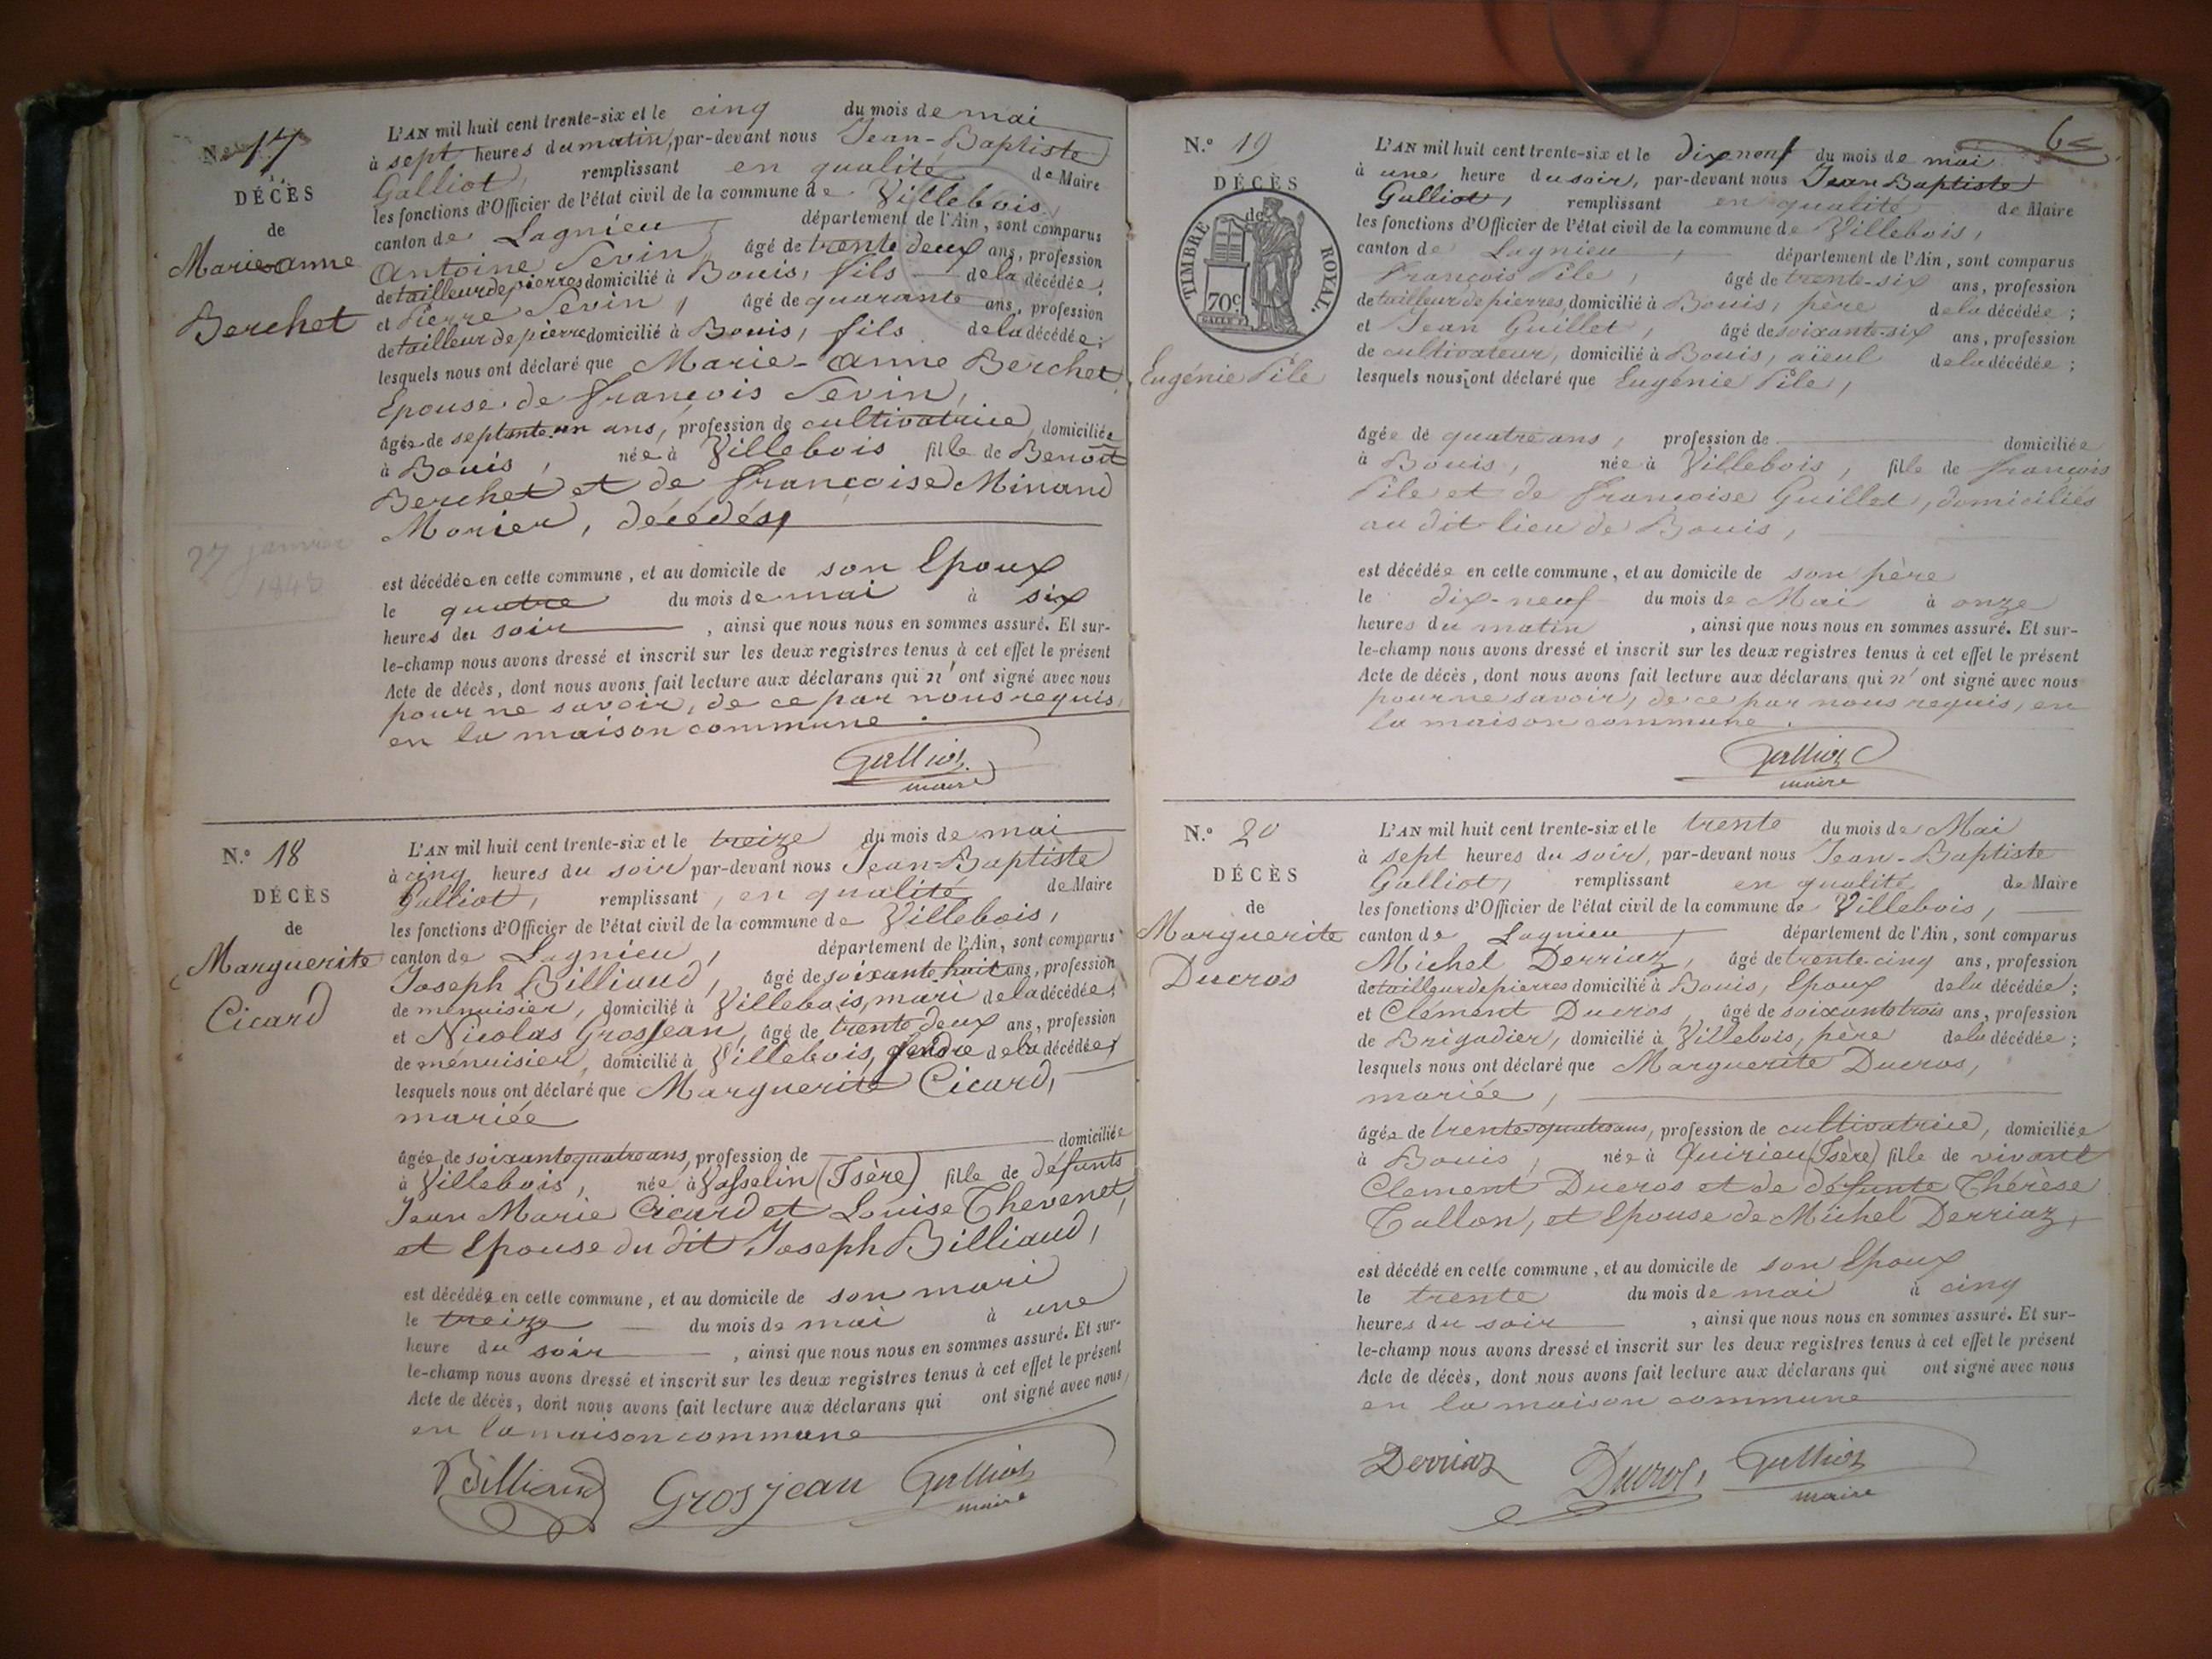 N.o 17
DÉCÈS
de
Marie anne
Berchet
L'AN mil huit cent trente-six et le cinq du mois de mai
à sept heures du matin, par-devant nous Jean-Baptiste
Galliot, remplissant en qualité de Maire
les fonctions d'Officier de l'état civil de la commune de Villebois,
canton de Lagnieu, département de l'Ain, sont comparus
Antoine Sevin, âgé de trente deux ans, profession
de tailleur de pierres domicilié à Bouis, fils de la décédée;
et Pierre Sevin, âgé de quarante ans, profession
de tailleur de pierre domicilié à Bouis, fils de la décédée;
lesquels nous ont déclaré que Marie-Anne Berchet,
Epouse de François Sevin,
âgée de septante un ans, profession de cultivatrice, domiciliée
à Bouis, née à Villebois fille de Benoît
Berchet et de Françoise Minand
Monier, décédés,
27 janvier
est décédée en cette commune, et au domicile de son Epoux
le quatre du mois de mai à six
heures du soir, ainsi que nous nous en sommes assuré. Et sur-
le-champ nous avons dressé et inscrit sur les deux registres tenus à cet effet le présent
Acte de décès, dont nous avons fait lecture aux déclarans qui n'ont signé avec nous
pour ne savoir, de ce par nous requis,
en la maison commune.
Galliot
maire
N.o 18
DÉCÈS
de
Marguerite
Cicard
L'AN mil huit cent trente-six et le treize du mois de mai
à cinq heures du soir par-devant nous Jean-Baptiste
Galliot, remplissant, en qualité de Maire
les fonctions d'Officier de l'état civil de la commune de Villebois,
canton de Lagnieu, département de l'Ain, sont comparus
Joseph Billiaud, âgé de soixante huit ans, profession
de menuisier, domicilié à Villebois, mari de la décédée;
et Nicolas Grosjean, âgé de trente deux ans, profession
de menuisier, domicilié à Villebois, gendre de la décédée;
lesquels nous ont déclaré que Marguerite Cicard,
mariée
âgée de soixante quatre ans, profession de domiciliée
à Villebois, née à Vasselin (Isère) fille de défunts
Jean Marie Cicard et Louise Thevenet,
et Epouse du dit Joseph Billiaud,
est décédée en cette commune, et au domicile de son mari
le treize du mois de mai à une
heure du soir, ainsi que nous nous en sommes assuré. Et sur-
le-champ nous avons dressé et inscrit sur les deux registres tenus à cet effet le présent
Acte de décès, dont nous avons fait lecture aux déclarans qui ont signé avec nous,
en la maison commune
Billiaud Grosjean Galliot
maire
N.o 19
DÉCÈS
de
TIMBRE ROYAL.
70c
Eugénie Pile
L'AN mil huit cent trente-six et le dix neuf du mois de mai
à une heure du soir, par-devant nous Jean Baptiste
Galliot, remplissant en qualité de Maire
les fonctions d'Officier de l'état civil de la commune de Villebois,
canton de Lagnieu, département de l'Ain, sont comparus
François Pile, âgé de trente-six ans, profession
de tailleur de pierres, domicilié à Bouis, père de la décédée;
et Jean Guillet, âgé de soixante-six ans, profession
de cultivateur, domicilié à Bouis, aïeul de la décédée;
lesquels nous ont déclaré que Eugénie Pile,
âgée de quatre ans, profession de domiciliée
à Bouis, née à Villebois, fille de François
Pile et de Françoise Guillet, domiciliés
au dit lieu de Bouis,
est décédée en cette commune, et au domicile de son père
le dix-neuf du mois de Mai à onze
heures du matin, ainsi que nous nous en sommes assuré. Et sur-
le-champ nous avons dressé et inscrit sur les deux registres tenus à cet effet le présent
Acte de décès, dont nous avons fait lecture aux déclarans qui n'ont signé avec nous
pour ne savoir, de ce par nous requis, en
la maison commune.
Galliot
maire
N.o 20
DÉCÈS
de
Marguerite
Ducros
L'AN mil huit cent trente-six et le trente du mois de Mai
à sept heures du soir, par-devant nous Jean-Baptiste
Galliot, remplissant en qualité de Maire
les fonctions d'Officier de l'état civil de la commune de Villebois,
canton de Lagnieu, département de l'Ain, sont comparus
Michel Derriaz, âgé de trente-cinq ans, profession
de tailleur de pierres domicilié à Bouis, Epoux de la décédée;
et Clément Ducros, âgé de soixante trois ans, profession
de Brigadier, domicilié à Villebois, père de la décédée;
lesquels nous ont déclaré que Marguerite Ducros,
mariée,
âgée de trente-quatre ans, profession de cultivatrice, domiciliée
à Bouis, née à Quirieu (Isère) fille de vivant
Clément Ducros et de défunte Thérèse
Tallon, et Epouse de Michel Derriaz,
est décédé en cette commune, et au domicile de son Epoux
le trente du mois de mai à cinq
heures du soir, ainsi que nous nous en sommes assuré. Et sur-
le-champ nous avons dressé et inscrit sur les deux registres tenus à cet effet le présent
Acte de décès, dont nous avons fait lecture aux déclarans qui ont signé avec nous
en la maison commune
Derriaz Ducros, Galliot
maire